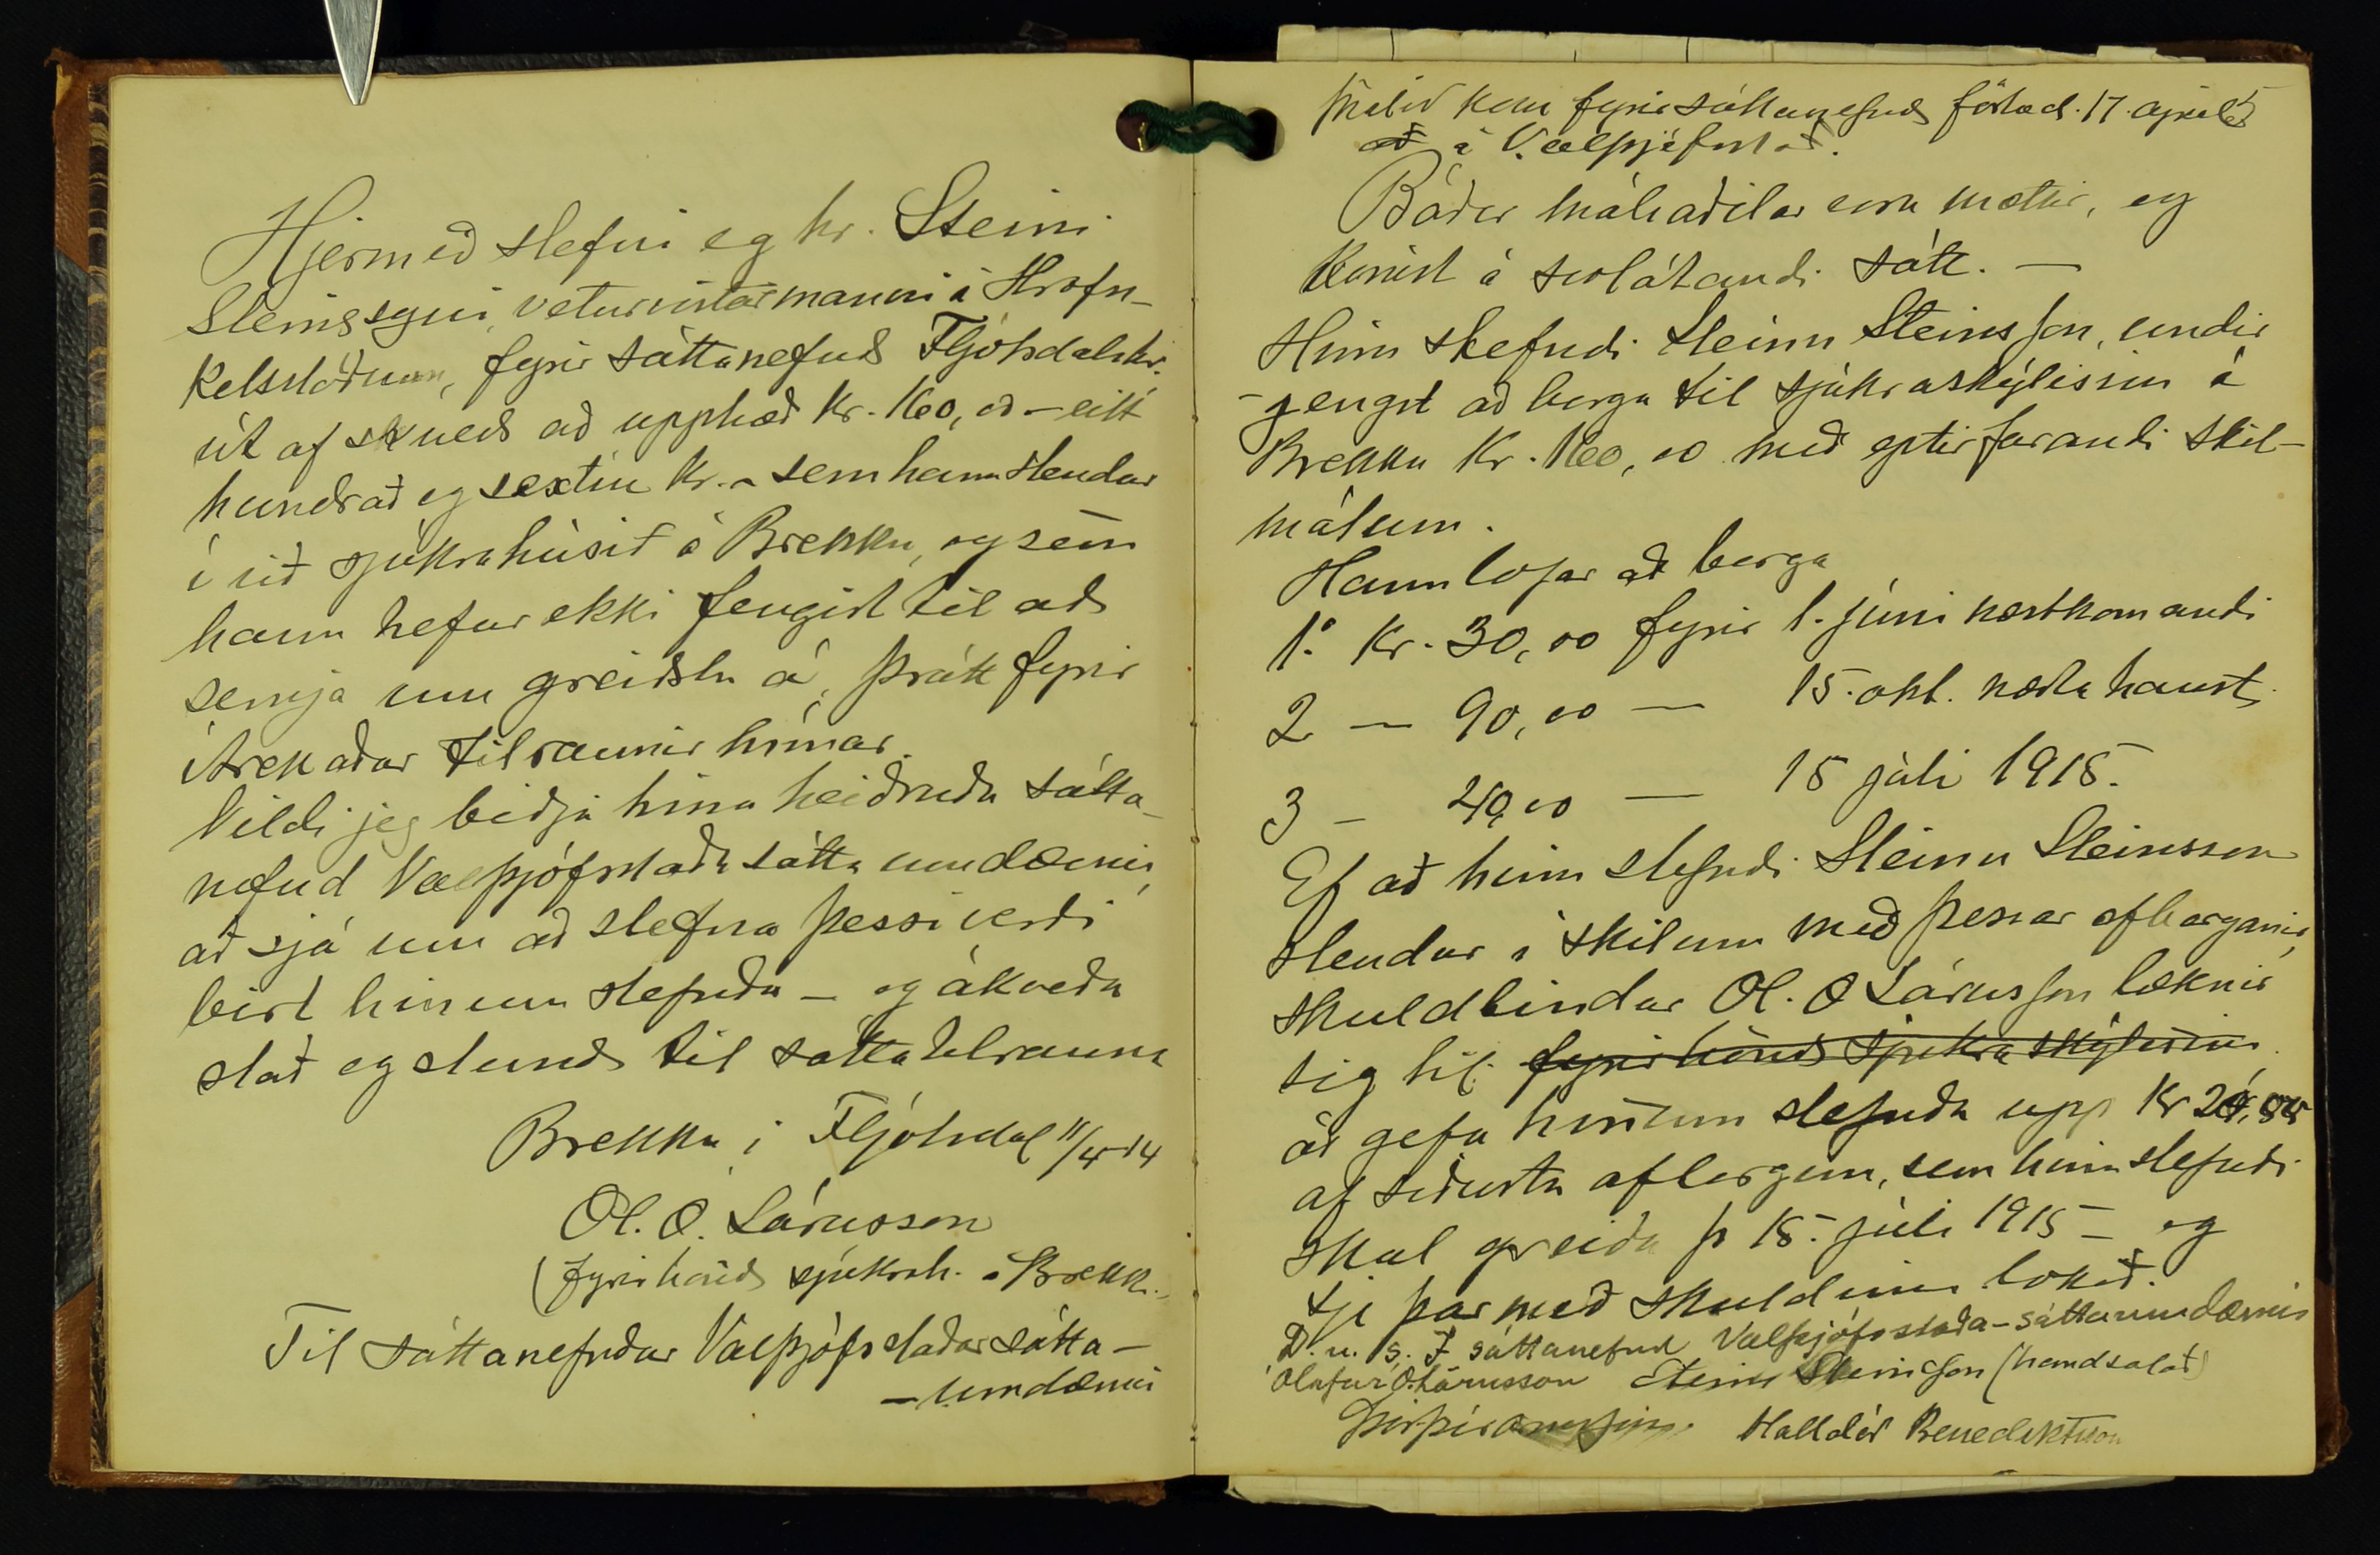 Hjermeð stefni eg hr. Steini
Steinssyni, veturvistarmanni á Hrafn-
kelsstöðum, fyrir sáttanefnd Fljótsdalshr.
út af skuld að upphæð kr. 160,00 – eitt
hundrað og sextíu kr. – sem hann stendur
í við sjúkrahúsið á Brekku, og sem
hann hefur ekki fengist til að
semja um greiðslu á, þrátt fyrir
ítrekaðar tilraunir mínar.
Vildi jeg biðja hina heiðruðu sátta-
nefnd Valþjófsstaða sáttaumdæmis,
að sjá um að stefna þessi verði
birt hinum stefnda – og ákveða
stað og stund til sáttatilrauna
Brekku í Fljótsdal 11/4-14
Ól. Ó. Lárusson
(fyrir hönd sjúkrah. á Brekku.
Til sáttanefndar Valþjófsstaðar sátta-
-umdæmis
Málið kom fyrir sáttanefnd föstud. 17. apríl
að á Valþjófsstað.
Báðir málsaðilar eru mættir, og
komist á svolátandi sátt. –
Hinn stefndi Steinn Steinsson, undir
-gengst að borga til sjúkraskýlisins á
Brekku kr. 160,00 með eptirfarandi skil-
málum.
Hann lofar að borga
1° kr. 30,00 fyrir 1. júní næstkomandi
2 – 90,00 – 15. okt. næsta haust
3 – 40,00 – 15 júlí 1915.
Ef að hinn stefndi Steinn Steinsson
stendur í skilum með þessar afborganir,
skuldbindur Ól. Ó Lárusson læknir
sig til fyrir hönd sjúkraskýlisins
að gefa hinum stefnda upp kr
af síðustu afborgun, sem hinn stefndi
skal greiða þ 15. júlí 1915 – og
sje þar með skuldinni lokið.
D. u. s. Í sáttanefnd Valþjófsstaða-sáttaumdæmis
Ólafur Ó. Lárusson Steinn Steinsson (handsalað)
Halldór Benediktsson